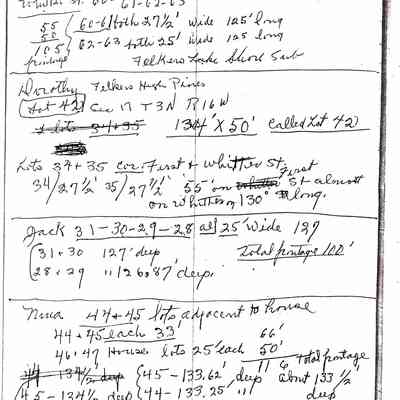 60-61-62-63
55 { 60-61 both 27½' wide 125' long
50
105 { 62-63 both 25' wide 125' long
frontage
Felkers Lake Shore Sub
Dorothy Felkers High Pines
(Lot 42) Sec 17 T3N R16W
2 lots 34+35 134' X 50' called Lot 42)
Lots 34+35 cor. First & Whittier St.
34/27½' 35/27½' 55' on Whittier First St almost
on Whittier 130' long.
Jack 31-30-29-28 all 25' wide 129
(31+30 127' deep Total frontage 100'
(28+29 " 126.87' deep.
Nina 44+45 lots adjacent to house
44+45 each 33' 66'
46+47 House lots 25' each 50'
116 total frontage
44 134½ deep {45-133.62' deep about 133½'
45-134½ deep {44-133.25' " deep